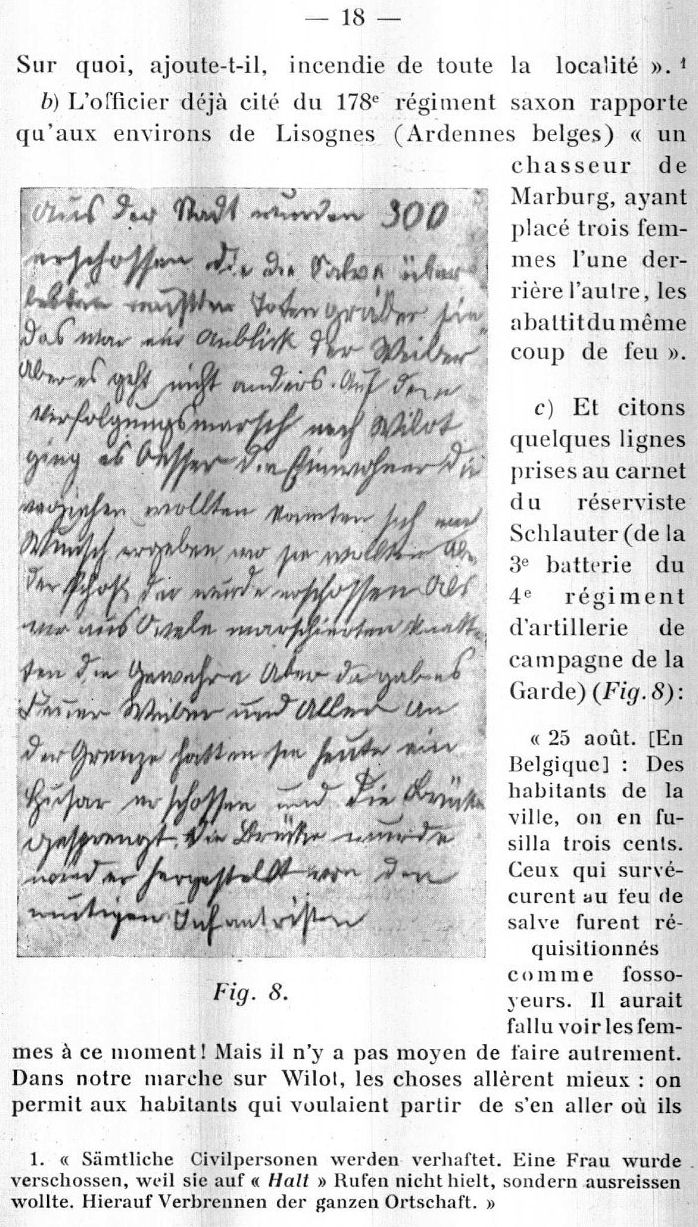 — 18 —
Sur quoi, ajoute-t-il, incendie de toute la localité ». ¹
b) L'officier déjà cité du 178ᵉ régiment saxon rapporte
qu'aux environs de Lisognes (Ardennes belges) « un
chasseur de
Marburg, ayant
placé trois fem-
mes l'une der-
rière l'autre, les
abattit du même
coup de feu ».
c) Et citons
quelques lignes
prises au carnet
du réserviste
Schlauter (de la
3ᵉ batterie du
4ᵉ régiment
d'artillerie de
campagne de la
Garde) (Fig. 8) :
« 25 août. [En
Belgique] : Des
habitants de la
ville, on en fu-
silla trois cents.
Ceux qui survé-
curent au feu de
salve furent ré-
quisitionnés
comme fosso-
yeurs. Il aurait
fallu voir les fem-
Aus der Stadt wurden 300
erschossen die die Salve über
lebten mussten Totengräber sein
das war ein Anblick der Weiber
Aber es geht nicht anders. Auf dem
Verfolgungsmarsch nach Wilot
ging es besser die Einwohner die
verziehen wollten konnten sich nach
Wunsch ergeben wo sie wollten Aber
der schoß der wurde erschossen Als
wir aus Owele marschierten knatt
ten die Gewehre Aber da gab es
Feuer Weiber und Alles An
der Grenze hatten sie heute ein
Husar erschossen und die Brücke
gesprengt. Die Brücke wurde
wieder hergestellt von den
mutigen Infantristen
Fig. 8.
mes à ce moment ! Mais il n'y a pas moyen de faire autrement.
Dans notre marche sur Wilot, les choses allèrent mieux : on
permit aux habitants qui voulaient partir de s'en aller où ils
1. « Sämtliche Civilpersonen werden verhaftet. Eine Frau wurde
verschossen, weil sie auf « Halt » Rufen nicht hielt, sondern ausreissen
wollte. Hierauf Verbrennen der ganzen Ortschaft. »